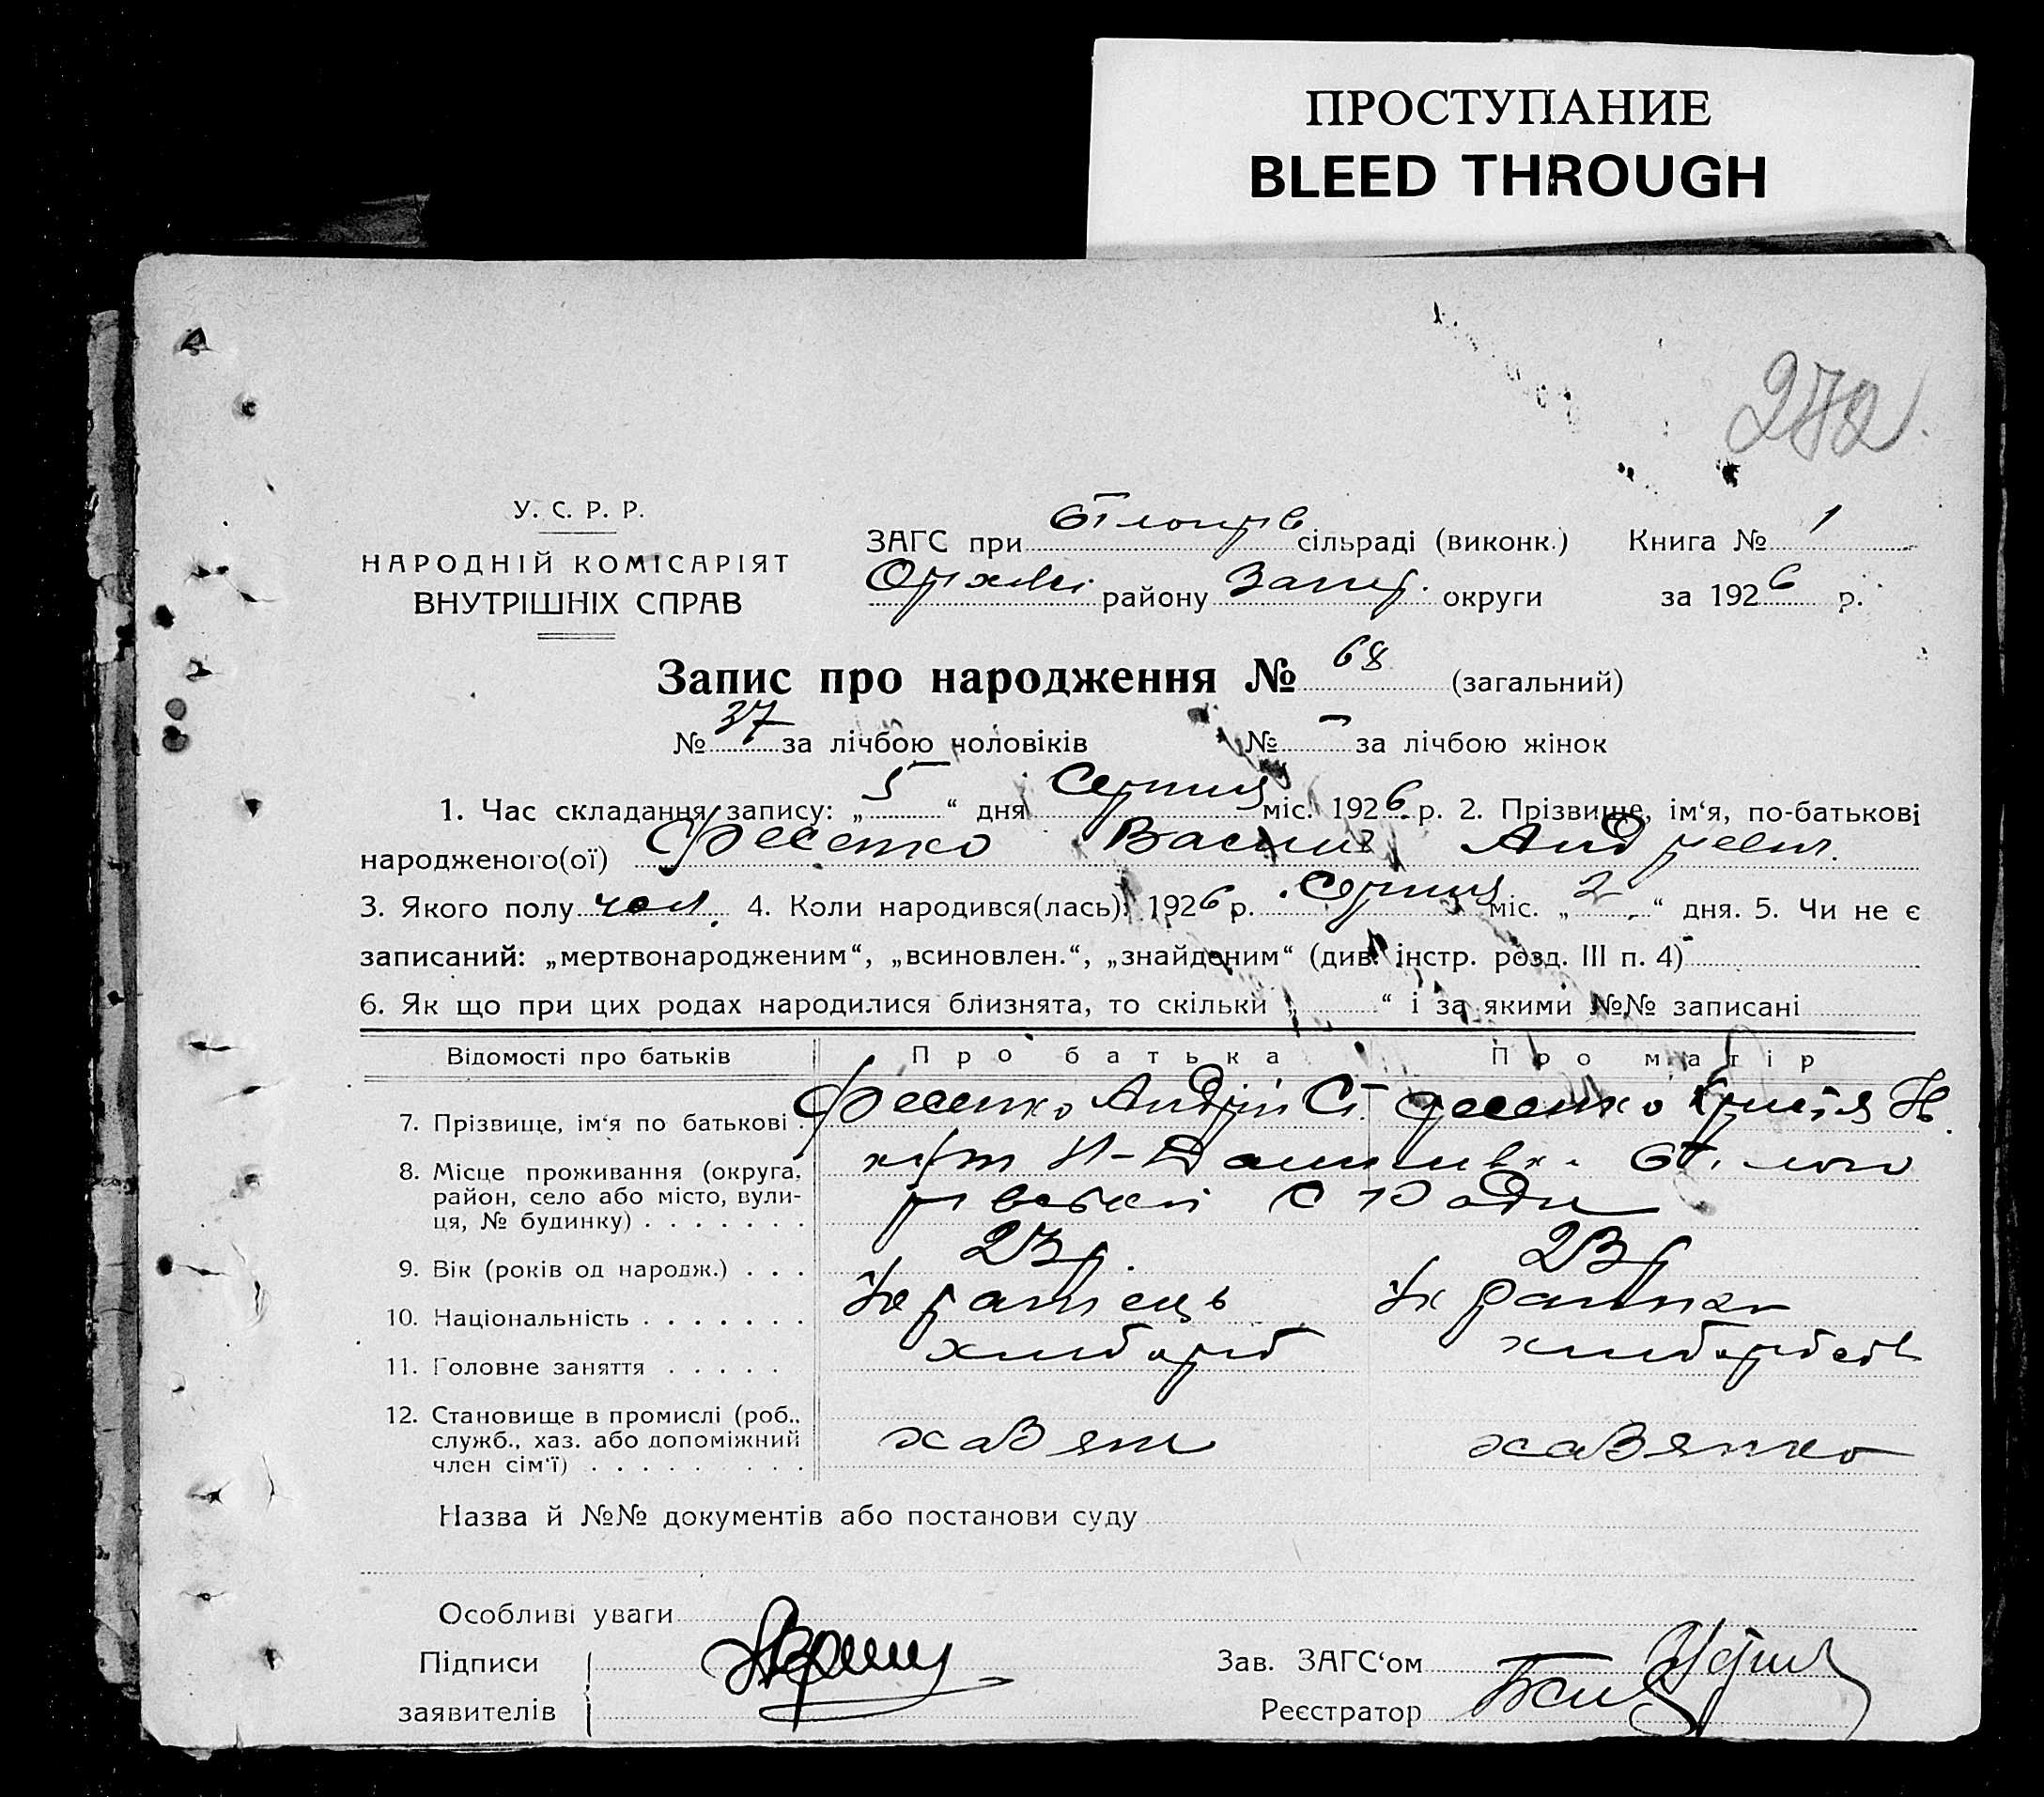 ПРОСТУПАНИЕ
BLEED THROUGH
272
У. С. Р. Р.
НАРОДНІЙ КОМІСАРІЯТ
ВНУТРІШНІХ СПРАВ
ЗАГС при сільраді (виконк.) Книга № 1
району Запор. округи за 1926 р.
Запис про народження № 68 (загальний)
№ 37 за лічбою чоловіків № – за лічбою жінок
1. Час складання запису: „ 5 “ дня Серпня міс. 1926 р. 2. Прізвище, ім‘я, по-батькові
народженого(ої) Фесенко Василь Андреевич.
3. Якого полу чол. 4. Коли народився(лась): 1926 р. Серпня міс. „ 2 “ дня. 5. Чи не є
записаний: „мертвонародженим“, „всиновлен.“, „знайденим“ (див. інстр. розд. III п. 4)
6. Як що при цих родах народилися близнята, то скільки „ “ і за якими №№ записані
Відомості про батьків Про батька Про матір
7. Прізвище, ім‘я по батькові . Фесенко Андрій Ст. Фесенко Христя Н.
8. Місце проживання (округа,
район, село або місто, вули-
ця, № будинку) . . . . . . . С Ради
9. Вік (років од народж.) . . . 23 р. 23 р
10. Національність . . . . . . . Українець Українка
11. Головне заняття . . . . . хлібороб
12. Становище в промислі (роб.,
служб., хаз. або допоміжний
член сім‘ї) . . . . . . . . хазяїн хазяйка
Назва й №№ документів або постанови суду
Особливі уваги
Підписи
заявителів
Зав. ЗАГС‘ом
Реєстратор